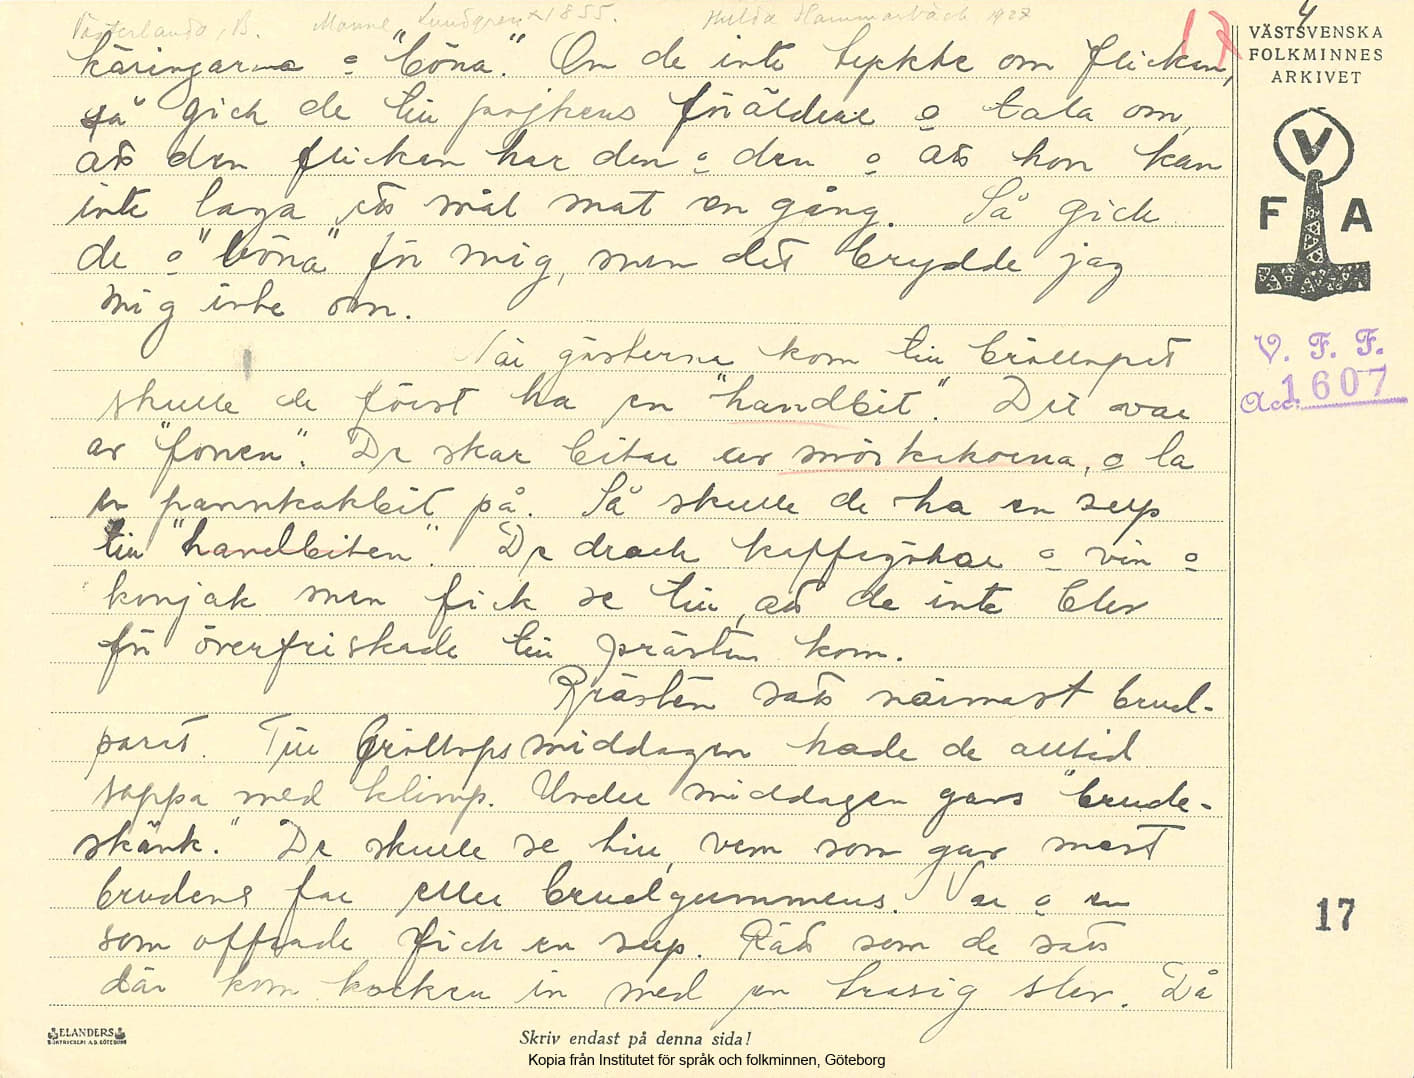 Västerlanda, B. Manne Lundgren *1855. Hulda Hammarbäck 1927
17
4
VÄSTSVENSKA
FOLKMINNES
ARKIVET
käringarna o "böna". Om de inte tyckte om flickan,
så gick de till pojkens föräldrar o tala om,
att den flickan har den o den o att hon kan
inte laga ett mål mat en gång. Så gick
de o "böna" för mig, men det brydde jag
mig inte om.
V
F A
V. F. F.
Acc. 1607
När gästerna kom till bröllopet
skulle de först ha en "handbit". Det var
av "fonen". De skar bitar av smörkakorna, o la
en pannkakbit på. Så skulle de ha en sup
till "handbiten". De drack kaffegökar o vin o
konjak men fick se till, att de inte blev
för överfriskade till prästen kom.
Prästen satt närmast brud-
paret. Till bröllopsmiddagen hade de alltid
soppa med klimp. Under middagen gavs "brude-
skänk." De skulle se till, vem som gav mest
brudens far eller brudgummens. Var o en
som offrade fick en sup. Rätt som de satt
där kom kocken in med en trasig slev. Då
17
ELANDERS
BOKTRYCKERI A.B. GÖTEBORG
Skriv endast på denna sida!
Kopia från Institutet för språk och folkminnen, Göteborg